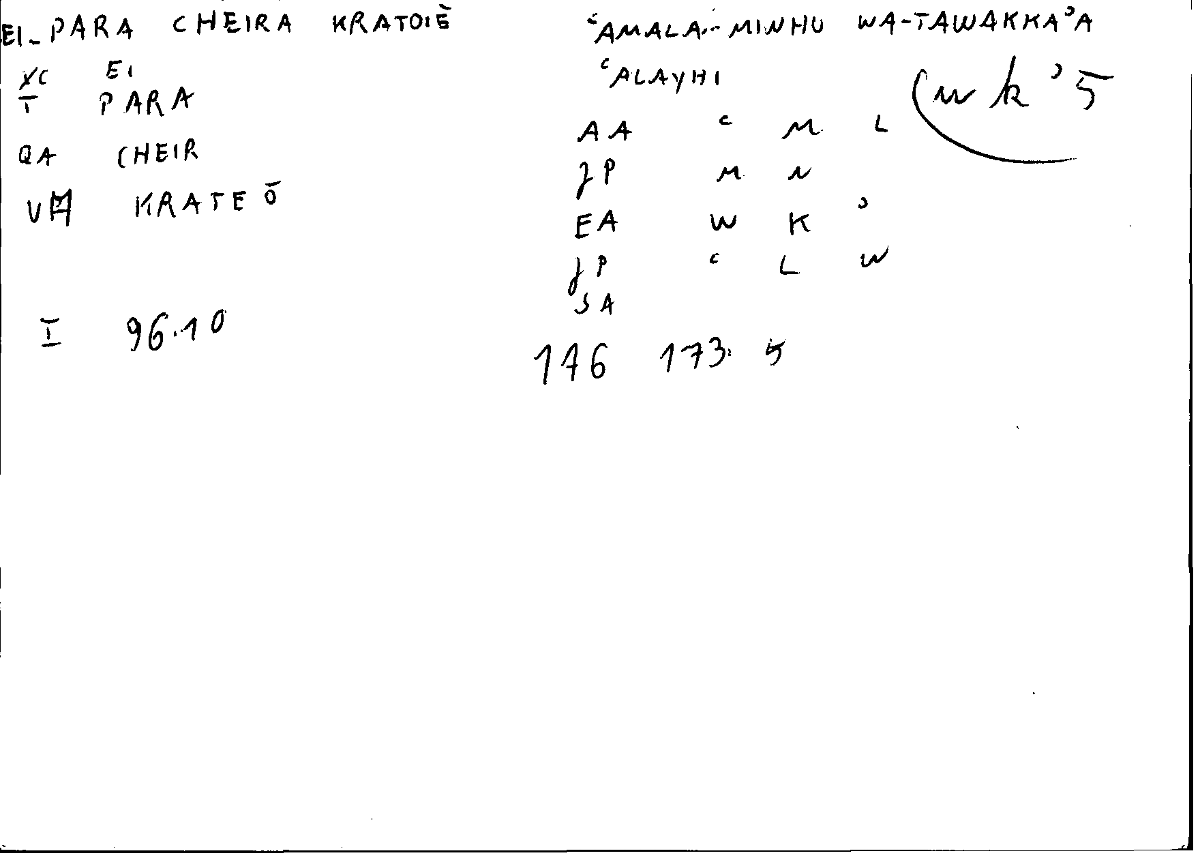 EI-PARA CHEIRA KRATOIĒ ʿAMALA-MINHU WA-TAWAKKAʾA
ʿALAYHI
XC EI
T PARA
QA CHEIR
V KRATEŌ
wkʾ5
AA ʿ M L
JP M N
EA W K ʾ
JP ʿ L W
SA
I 96.10
176 173. 5